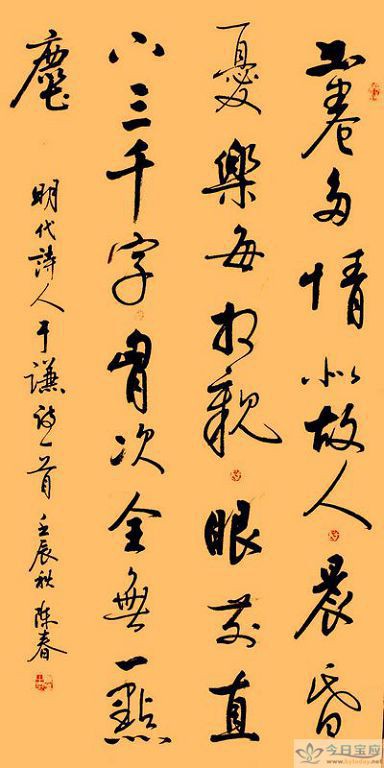 書卷多情似故人晨昏
憂樂每相親眼前直
下三千字胷次全無一點
塵
明代詩人于謙詩一首 壬辰秋 陳春
今日宝应
www.bytoday.net